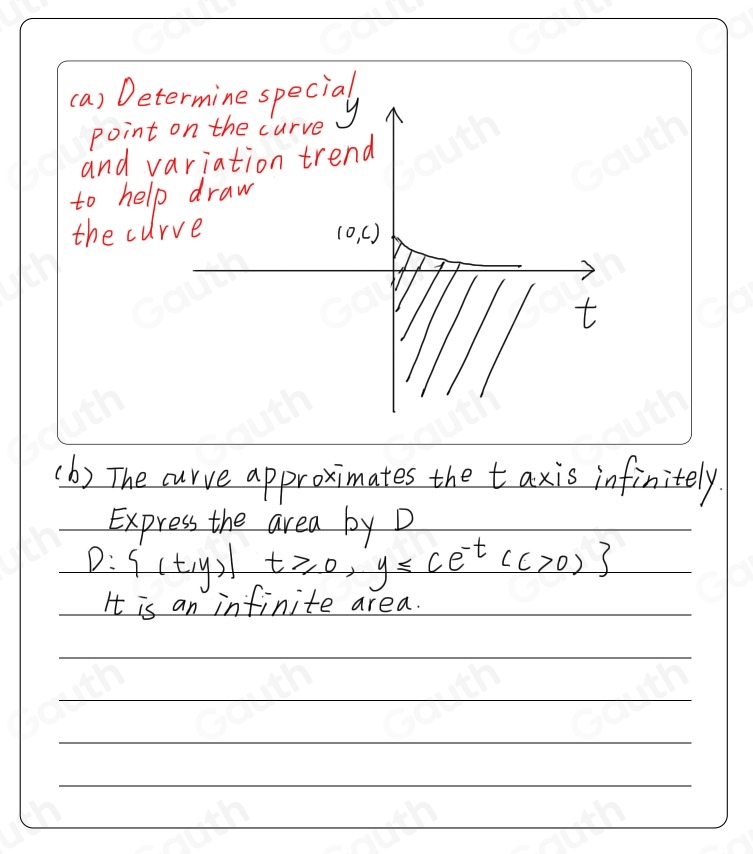 (a) Determine special
point on the curve
and variation trend
to help draw
the curve
y
(0,C)
t
(b) The curve approximates the t axis infinitely.
Express the area by D
D: { (t,y) | t ≥ 0, y ≤ Ce^-t (C>0) }
It is an infinite area.
Gauth